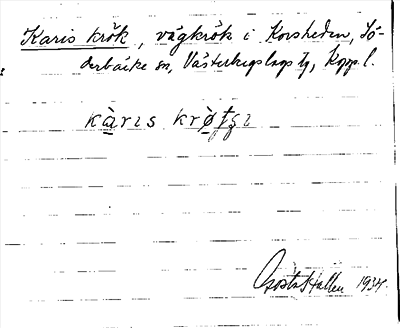 Karis krök, vägkrök i Korsheden, Sö-
derbärke sn, Västerbergslags tg, Kopp. l.
kàris krø̀
Gösta Hallen 1934.